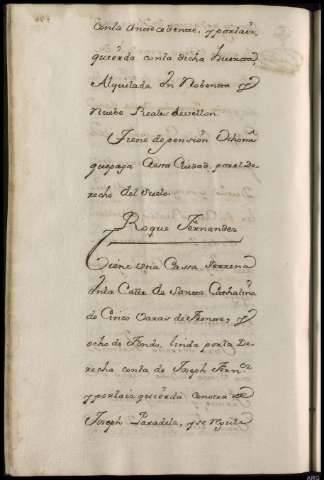 con la Antecedente, y por la iz
quierda con la dicha Huerta,
Alquilada en Nobenta y
Nuebe Reales de vellon.
Tiene de pension Ocho mrs
que paga a esta Ciudad, por el de
recho del Suelo.
Roque Fernandez
Tiene una Cassa terrena
en la Calle de Santa Cathalina
de Cinco Varas de frente, y
ocho de Fondo, linda por la De
recha con la de Joseph Fernz
y por la izquierda con otra de
Joseph Paradela, y se